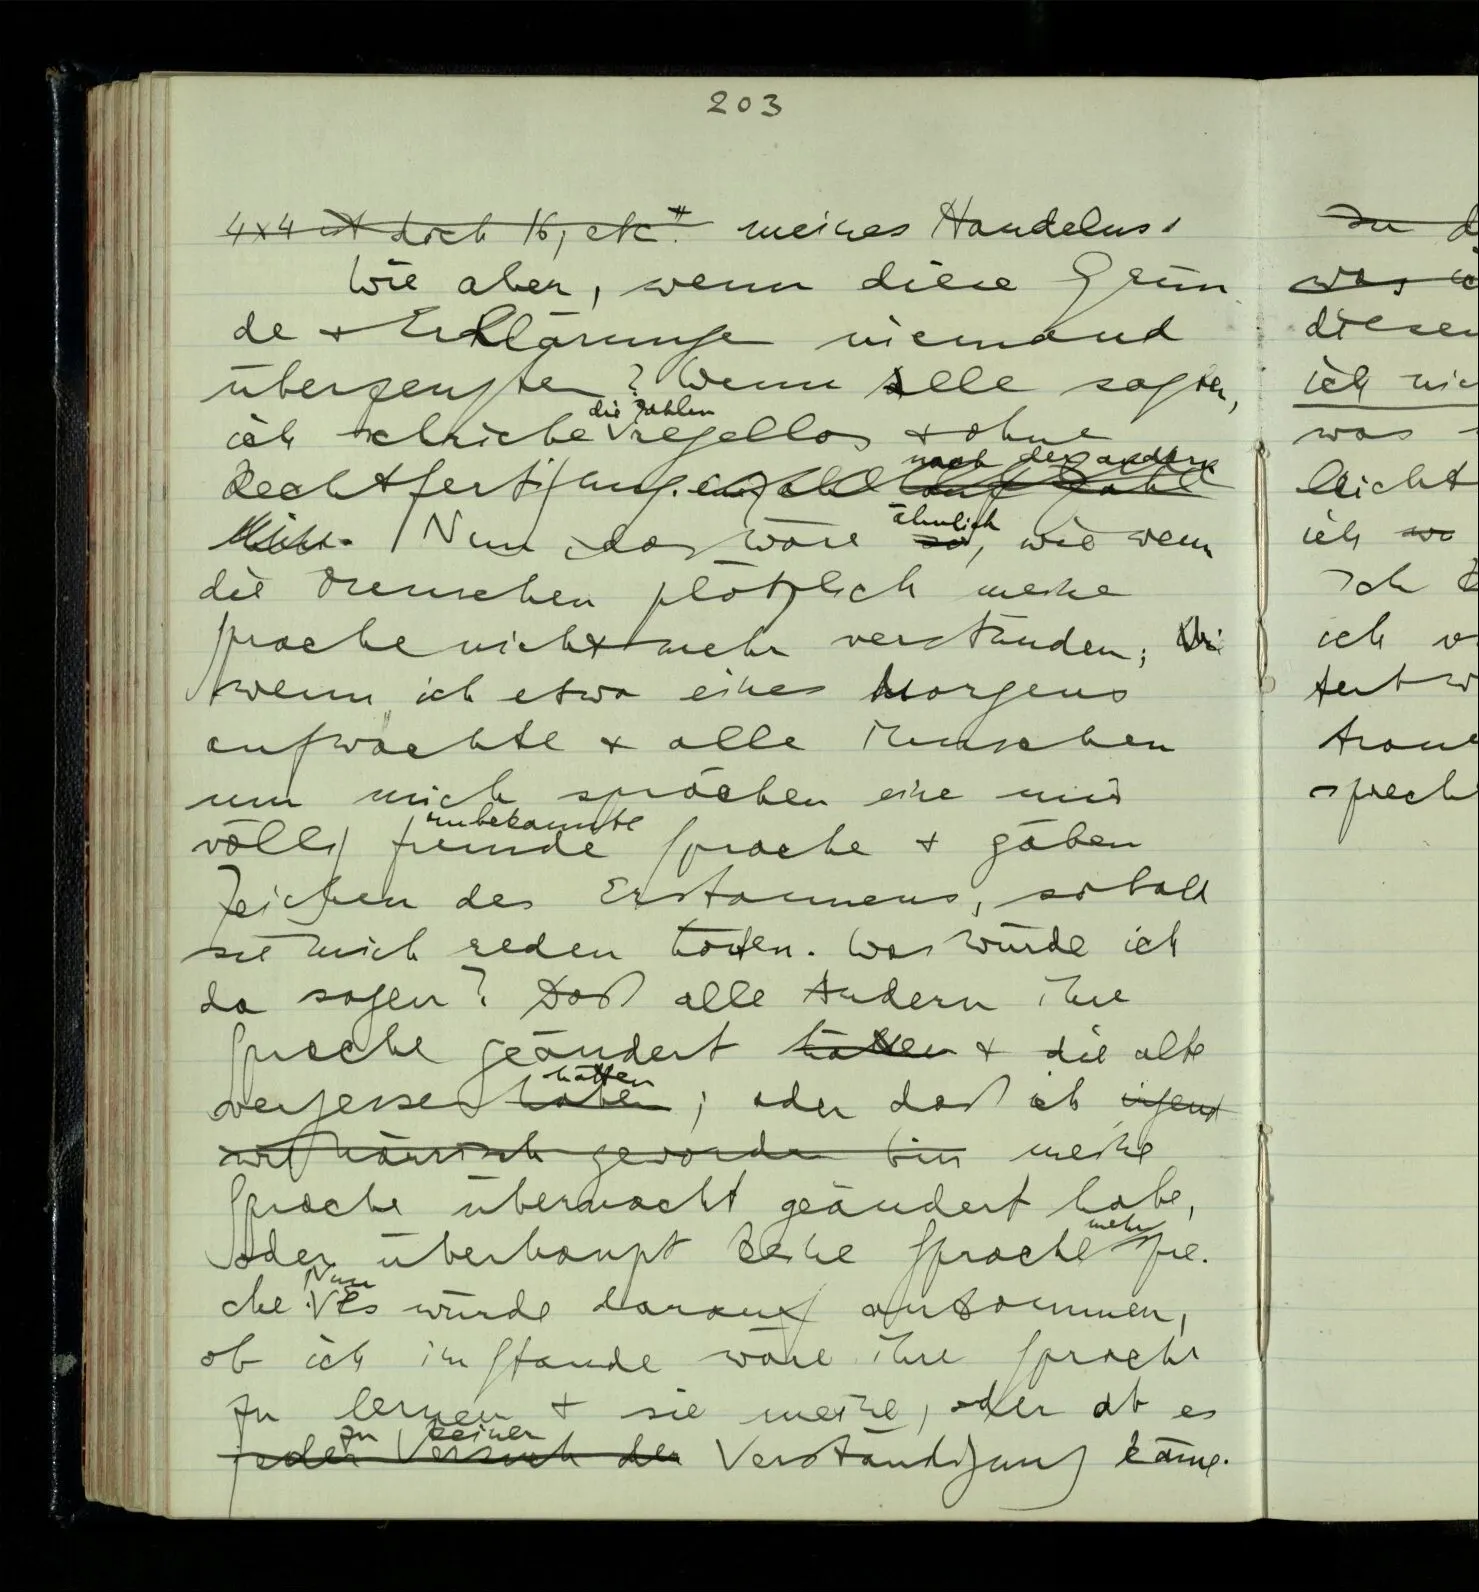 203
4×4 ist doch 16, etc." meines Handelns.
Wie aber, wenn diese Grün
de + Erklärungen niemand
überzeugten? Wenn alle sagten,
die Zahlen
ich schriebe regellos + ohne
nach der andern
Rechtfertigung eine Zahl auf Zahl
ähnlich
Nun das wäre so, wie wenn
die Menschen plötzlich meine
Sprache nicht mehr verstünden;
wenn ich etwa eines Morgens
aufwachte + alle Menschen
um mich sprächen eine mir
unbekannte
völlig fremde Sprache + gäben
Zeichen des Erstaunens, sobald
sie mich reden hörten. Was würde ich
da sagen? Daß alle Andern ihre
Sprache geändert hätten + die alte
hätten
vergessen haben; oder daß ich irgend
wie närrisch geworden bin meine
Sprache übernacht geändert habe,
mehr
oder überhaupt keine Sprache spre-
Nun
che. Es würde darauf ankommen,
ob ich im Stande wäre ihre Sprache
zu lernen + sie meine, oder ob es
zu keiner
jeder Versuch der Verständigung käme.
was
diesen
ich
was
leicht
ich wo
Ich
ich